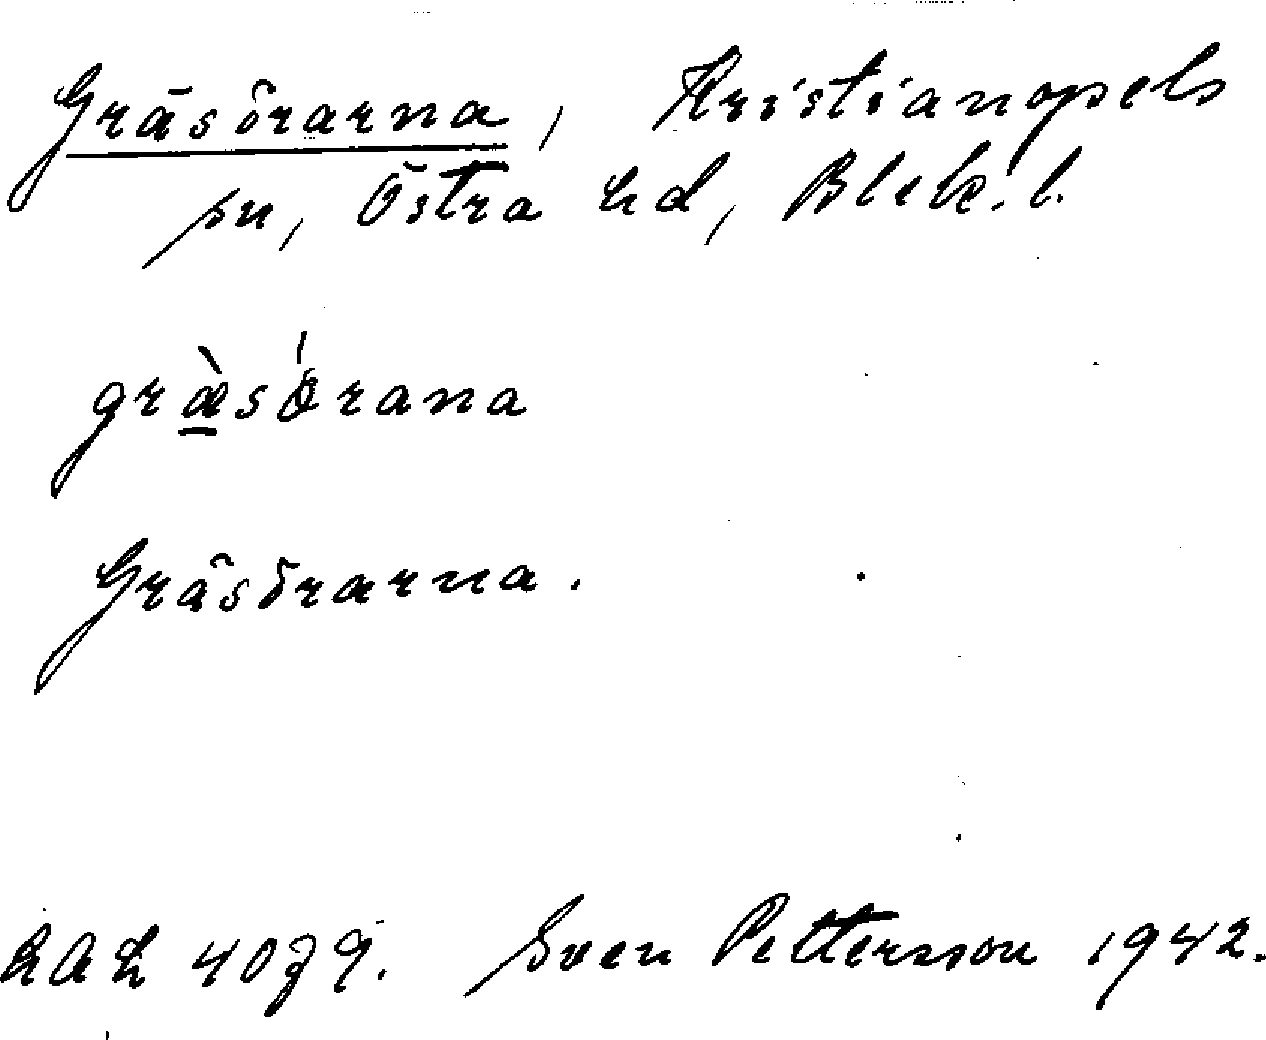 Gräsörarna, Kristianopels
sn, Östra hd, Blek. l.
græ̀sǿrana
Gräsörarna.
LAL 4079. Sven Pettersson 1942.